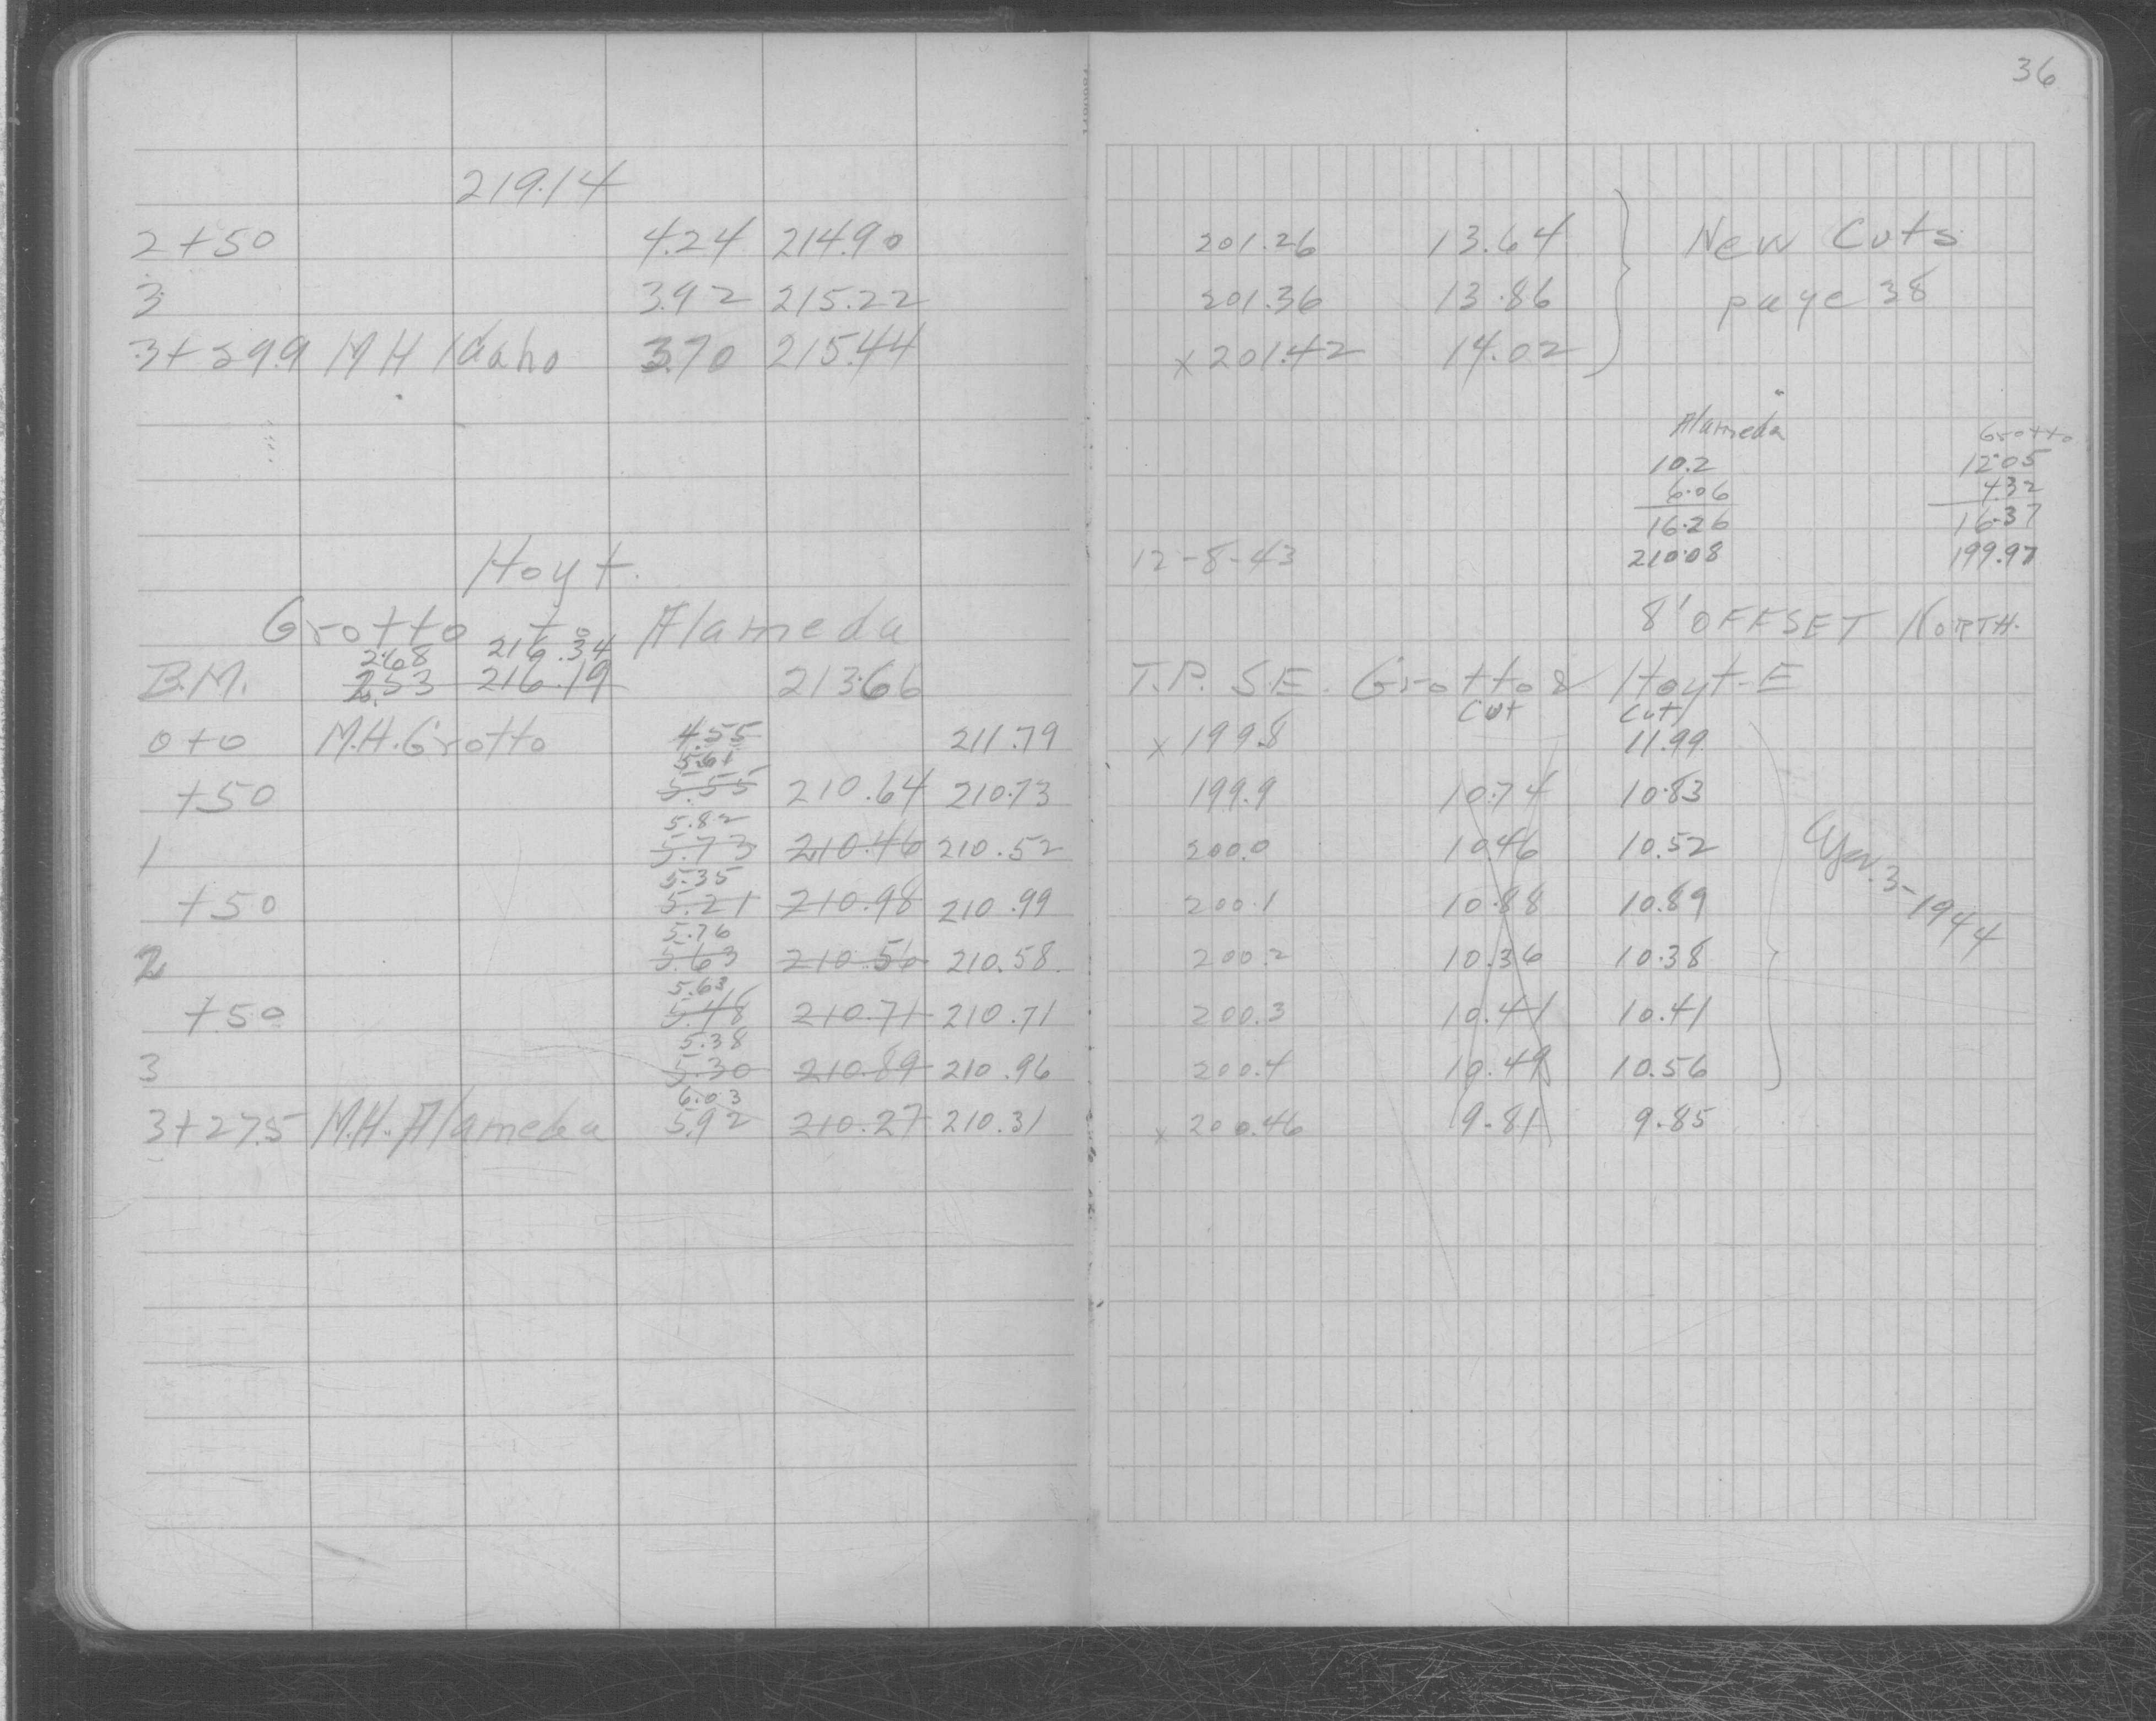 36
219.14
2+50 4.24 214.90 201.26 13.64 New Cuts
3 3.92 215.22 201.36 13.86 page 38
3+39.9 M H Idaho 3.70 215.44 x 201.42 14.02
Alameda Grotto
10.2 12.05
6.06 4.32
16.26 16.37
Hoyt. 12-8-43 210.08 199.97
Grotto to Alameda 8' OFFSET NORTH.
2.68 216.34
B.M. 2.53 216.19 213.66 T.P. S.E. Grotto & Hoyt-E
Cut Cut
0+0 M.H. Grotto 4.55 211.79 x 199.8 11.99
5.61
+50 5.55 210.64 210.73 199.9 10.74 10.83
5.82
1 5.73 210.46 210.52 200.0 10.46 10.52
5.35
+50 5.21 210.98 210.99 200.1 10.88 10.89
3-1944
5.76
2 5.63 210.56 210.58 200.2 10.36 10.38
5.63
+50 5.48 210.71 210.71 200.3 10.41 10.41
5.38
3 5.30 210.89 210.96 200.4 10.49 10.56
6.03
3+27.5 M.H. Alameda 5.92 210.27 210.31 x 200.46 9.81 9.85